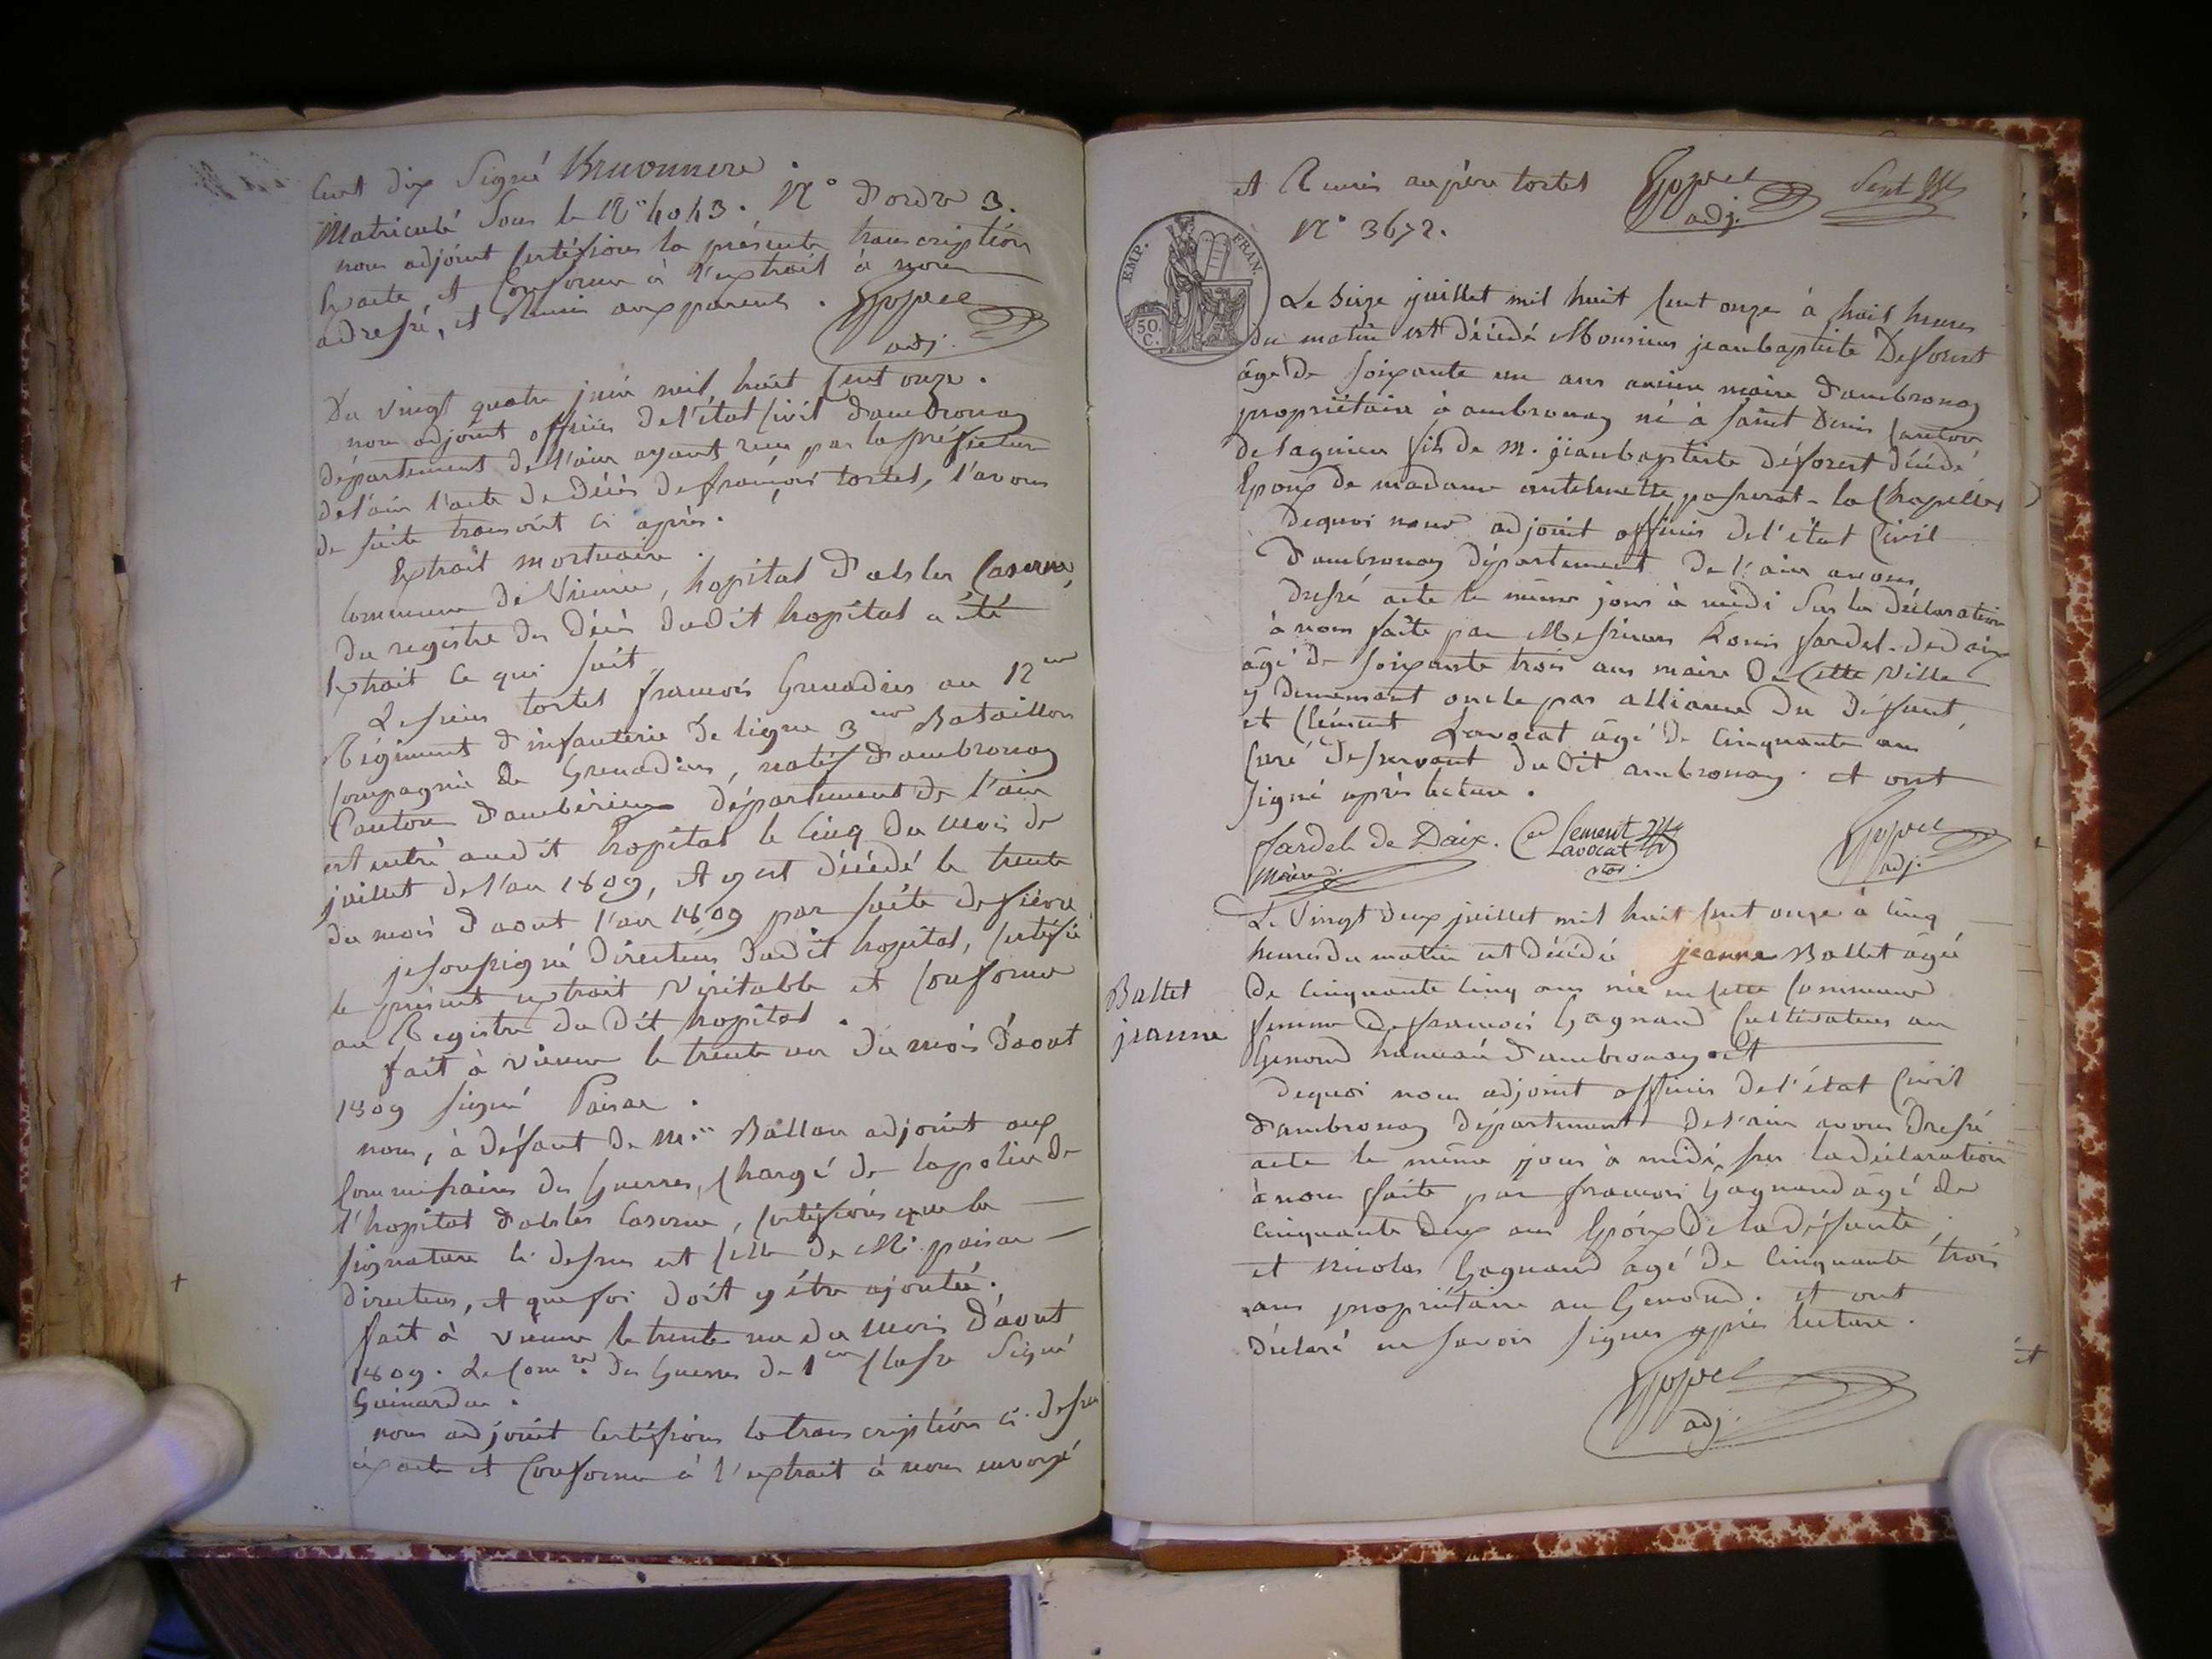 Cent dix Signé
Matriculé Sous le N° 4043. N° d'ordre 3.
nous adjoint certifions la présente transcription
Exacte, et Conforme à l'extrait à nous
adressé, et Remis aux parens.
adj.
Du vingt quatre juin mil huit cent onze.
nous adjoint officier de l'état Civil d'ambronay
département de l'ain ayant reçu par la préfecture
de l'ain l'acte de décès de françois tortel, l'avons
de suite transcrit ci après.
Extrait mortuaire.
Commune de Vienne, hopital d'alster Caserne,
du registre des décès dudit hopital a été
Extrait ce qui suit
Le sieur tortel francois Grenadier au 12me
Régiment d'infanterie de ligne 3me Bataillon
Compagnie de Grenadiers, natif d'ambronay
Canton d'ambérieux département de l'ain
est entré audit hopital le Cinq du mois de
juillet de l'an 1809, et y est décédé le trente
du mois d'aout l'an 1809 par suite de fièvre
je soussigné directeur dudit hopital, certifie
le présent extrait Véritable et Conforme
au Registre du dit hopital.
fait à vienne le trente un du mois d'aout
1809 signé Poirae.
nous, à défaut de Mr. Ballan adjoint aux
Commissaires des Guerres, Chargé de la police de
l'hopital d'alster Caserne, certifions que la
signature ci dessus est celle de Mr. poirae
directeur, et que foi doit y être ajoutée.
fait à vienne le trente un du mois d'aout
1809. Le Comre. des Guerres de 1ere Classe Signé
Guinardau.
nous adjoint Certifions la transcription ci-dessus
exacte et Conforme à l'extrait à nous envoyé
et Remis au père tortel
adj.
N° 3672.
EMP. FRAN.
50 C.
Le Seize juillet mil huit Cent onze à huit heures
du matin est décédé Monsieur jeanbaptiste Deforest
âgé de soixante un ans ancien maire d'ambronay
propriétaire à ambronay né à saint Denis Canton
de lagnieu fils de M. jeanbaptiste déforest décédé
Epoux de madame anthelmette passerat-la Chapelle
dequoi nous adjoint officier de l'état Civil
d'ambronay département de l'ain avons
dressé acte le même jour à midi Sur la déclaration
à nous faite par Messieurs Louis fardel-dedaix
âgé de soixante trois ans maire de Cette Ville
y demeurant oncle par alliance du défunt,
et Clément Lavocat âgé de Cinquante ans
Curé desservant du dit ambronay. et ont
signé après lecture.
fardel de Daix. Clement
maire Lavocat
adj.
Le Vingt deux juillet mil huit cent onze à cinq
heures du matin est décédée jeanne Ballet âgée
Ballet
jeanne
de Cinquante Cinq ans née en cette Commune
femme de francois Gagnaud Cultivateur au
Genoud hameau d'ambronay.
dequoi nous adjoint officier de l'état Civil
d'ambronay département de l'ain avons dressé
acte le même jour à midi, sur la déclaration
à nous faite par francois Gagnaud âgé de
Cinquante deux ans Epoux de la défunte,
et nicolas Gagnaud âgé de Cinquante trois
ans propriétaire au Genoud. et ont
déclaré ne savoir signer après lecture.
adj.